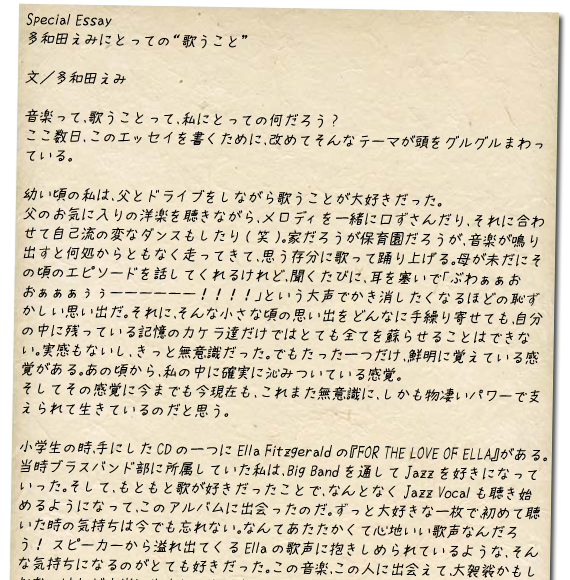 Special Essay
多和田えみにとっての“歌うこと”
文／多和田えみ
音楽って、歌うことって、私にとっての何だろう？
ここ数日、このエッセイを書くために、改めてそんなテーマが頭をグルグルまわっ
ている。
幼い頃の私は、父とドライブをしながら歌うことが大好きだった。
父のお気に入りの洋楽を聴きながら、メロディを一緒に口ずさんだり、それに合わ
せて自己流の変なダンスもしたり（笑）。家だろうが保育園だろうが、音楽が鳴り
出すと何処からともなく走ってきて、思う存分に歌って踊り上げる。母が未だにそ
の頃のエピソードを話してくれるけれど、聞くたびに、耳を塞いで「ぶわぁぁお
おぁぁぁぅぅーーーーーー！！！！」という大声でかき消したくなるほどの恥ず
かしい思い出だ。それに、そんな小さな頃の思い出をどんなに手繰り寄せても、自分
の中に残っている記憶のカケラ達だけではとても全てを蘇らせることはできな
い。実感もないし、きっと無意識だった。でもたった一つだけ、鮮明に覚えている感
覚がある。あの頃から、私の中に確実に沁みついている感覚。
そしてその感覚に今までも今現在も、これまた無意識に、しかも物凄いパワーで支
えられて生きているのだと思う。
小学生の時、手にしたCDの一つにElla Fitzgeraldの『FOR THE LOVE OF ELLA』がある。
当時ブラスバンド部に所属していた私は、Big Bandを通してJazzを好きになって
いった。そして、もともと歌が好きだったことで、なんとなくJazz Vocalも聴き始
めるようになって、このアルバムに出会ったのだ。ずっと大好きな一枚で、初めて聴
いた時の気持ちは今でも忘れない。なんてあたたかくて心地いい歌声なんだろ
う！ スピーカーから溢れ出てくるEllaの歌声に抱きしめられているような、そん
な気持ちになるのがとても好きだった。この音楽、この人に出会えて、大袈裟かもし